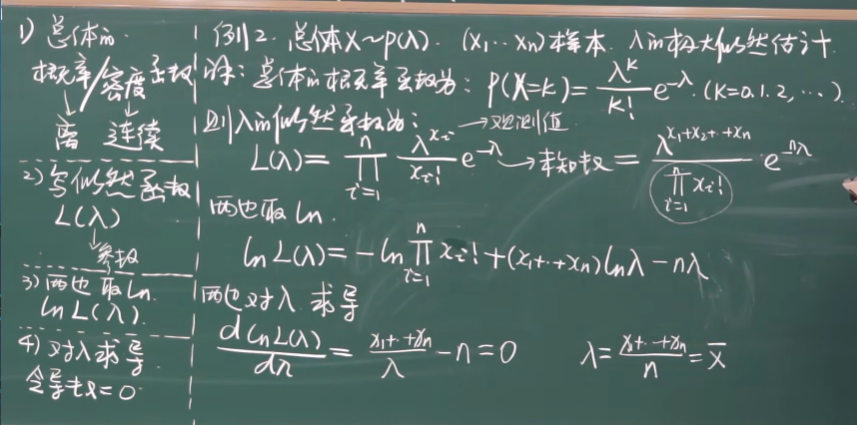 1) 总体的
概率/密度函数
↓ ↓
离 连续
2) 写似然函数
L(λ)
↓
参数
3) 两边取ln.
ln L(λ).
4) 对λ求导
令导数=0
例12. 总体X~p(λ). (x₁…xₙ)样本. λ的极大似然估计.
解: 总体的概率函数为: P(X=k)= λᵏ/k! e^(-λ). (k=0.1.2,…).
则λ的似然函数为: →观测值
L(λ)= ∏_{i=1}^{n} λ^(xᵢ)/xᵢ! e^(-λ) →未知数 = λ^(x₁+x₂+…+xₙ)/∏_{i=1}^{n} xᵢ! e^(-nλ)
两边取ln.
ln L(λ)= -ln ∏_{i=1}^{n} xᵢ! +(x₁+…+xₙ)lnλ -nλ
两边对λ求导
d ln L(λ)/dλ = (x₁+…+xₙ)/λ -n=0 λ= (x₁+…+xₙ)/n = x̄